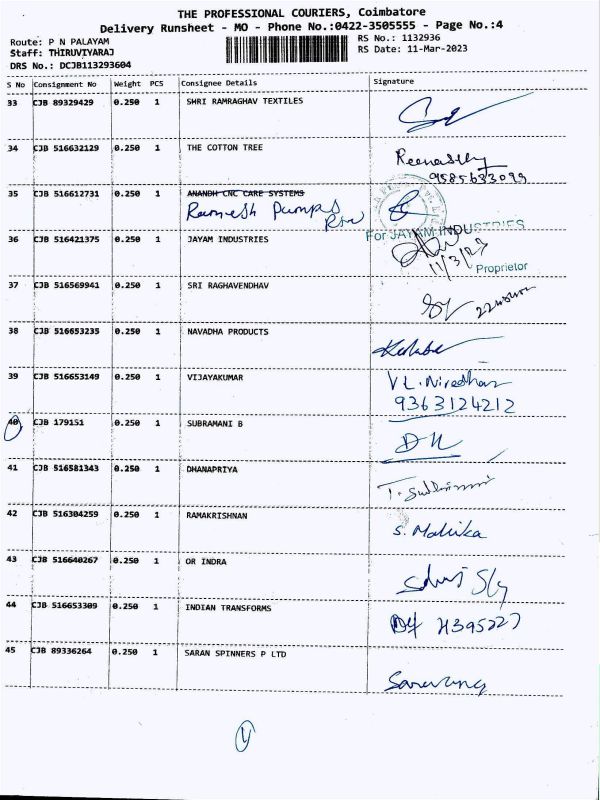 THE PROFESSIONAL COURIERS, Coimbatore
Delivery Runsheet - MO - Phone No.:0422-3505555 - Page No.:4
Route: P N PALAYAM
Staff: THIRUVIYARAJ
DRS No.: DCJB113293604
RS No.: 1132936
RS Date: 11-Mar-2023
S No Consignment No Weight PCS Consignee Details Signature
33 CJB 89329429 0.250 1 SHRI RAMRAGHAV TEXTILES
34 CJB 516632129 0.250 1 THE COTTON TREE
9585633099
35 CJB 516612731 0.250 1 ANANDH CNC CARE SYSTEMS
Ramesh Pumps
36 CJB 516421375 0.250 1 JAYAM INDUSTRIES
For JAYAM INDUSTRIES
11/3/23
Proprietor
37 CJB 516569941 0.250 1 SRI RAGHAVENDHAV
38 CJB 516653235 0.250 1 NAVADHA PRODUCTS
39 CJB 516653149 0.250 1 VIJAYAKUMAR
9363124212
40 CJB 179151 0.250 1 SUBRAMANI B
41 CJB 516581343 0.250 1 DHANAPRIYA
42 CJB 516304259 0.250 1 RAMAKRISHNAN
S. Mallika
43 CJB 516640267 0.250 1 OR INDRA
44 CJB 516653309 0.250 1 INDIAN TRANSFORMS
45 CJB 89336264 0.250 1 SARAN SPINNERS P LTD
4